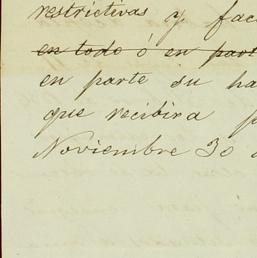 restrictivas y fac
en todo ó en part
en parte su ha
que recibira p
Noviembre 30 d